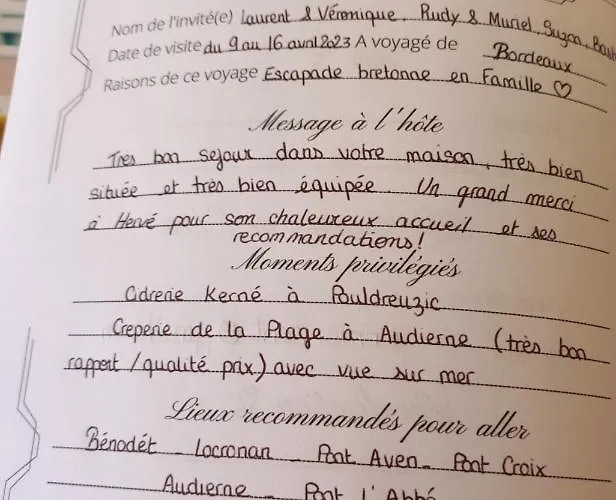 Nom de l'invité(e) Laurent & Véronique, Rudy & Muriel, Suzon,
Date de visite du 9 au 16 avril 2023 A voyagé de Bordeaux
Raisons de ce voyage Escapade bretonne en Famille ♡
Message à l'hôte
Très bon sejour dans votre maison, très bien
située et très bien équipée. Un grand merci
à Hervé pour son chaleureux accueil et ses
recommandations!
Moments privilégiés
Cidrerie Kerné à Pouldreuzic
Creperie de la Plage à Audierne (très bon
rapport / qualité prix) avec vue sur mer
Lieux recommandés pour aller
Bénodét - Locronan - Pont Aven - Pont Croix
Audierne - Pont l'Abbé